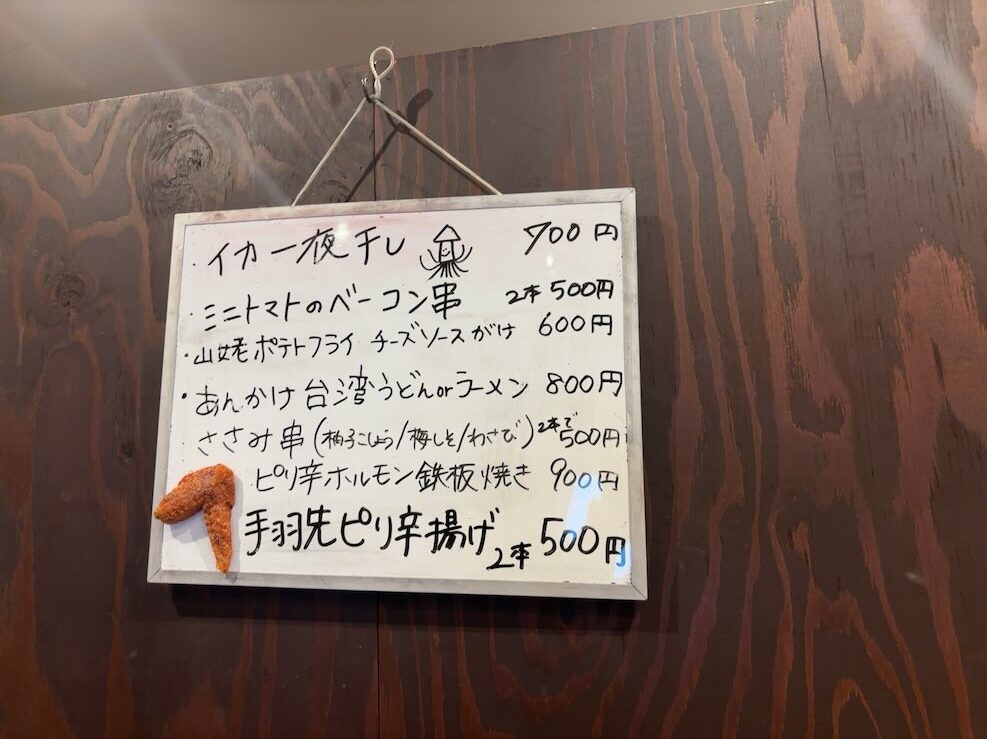 ・イカ一夜干し 700円
ミニトマトのベーコン串 2本 500円
・山姥ポテトフライ チーズソースがけ 600円
・あんかけ台湾うどんorラーメン 800円
ささみ串(柚子こしょう/梅しそ/わさび) 2本で 500円
ピリ辛ホルモン鉄板焼き 900円
手羽先ピリ辛揚げ 2本 500円